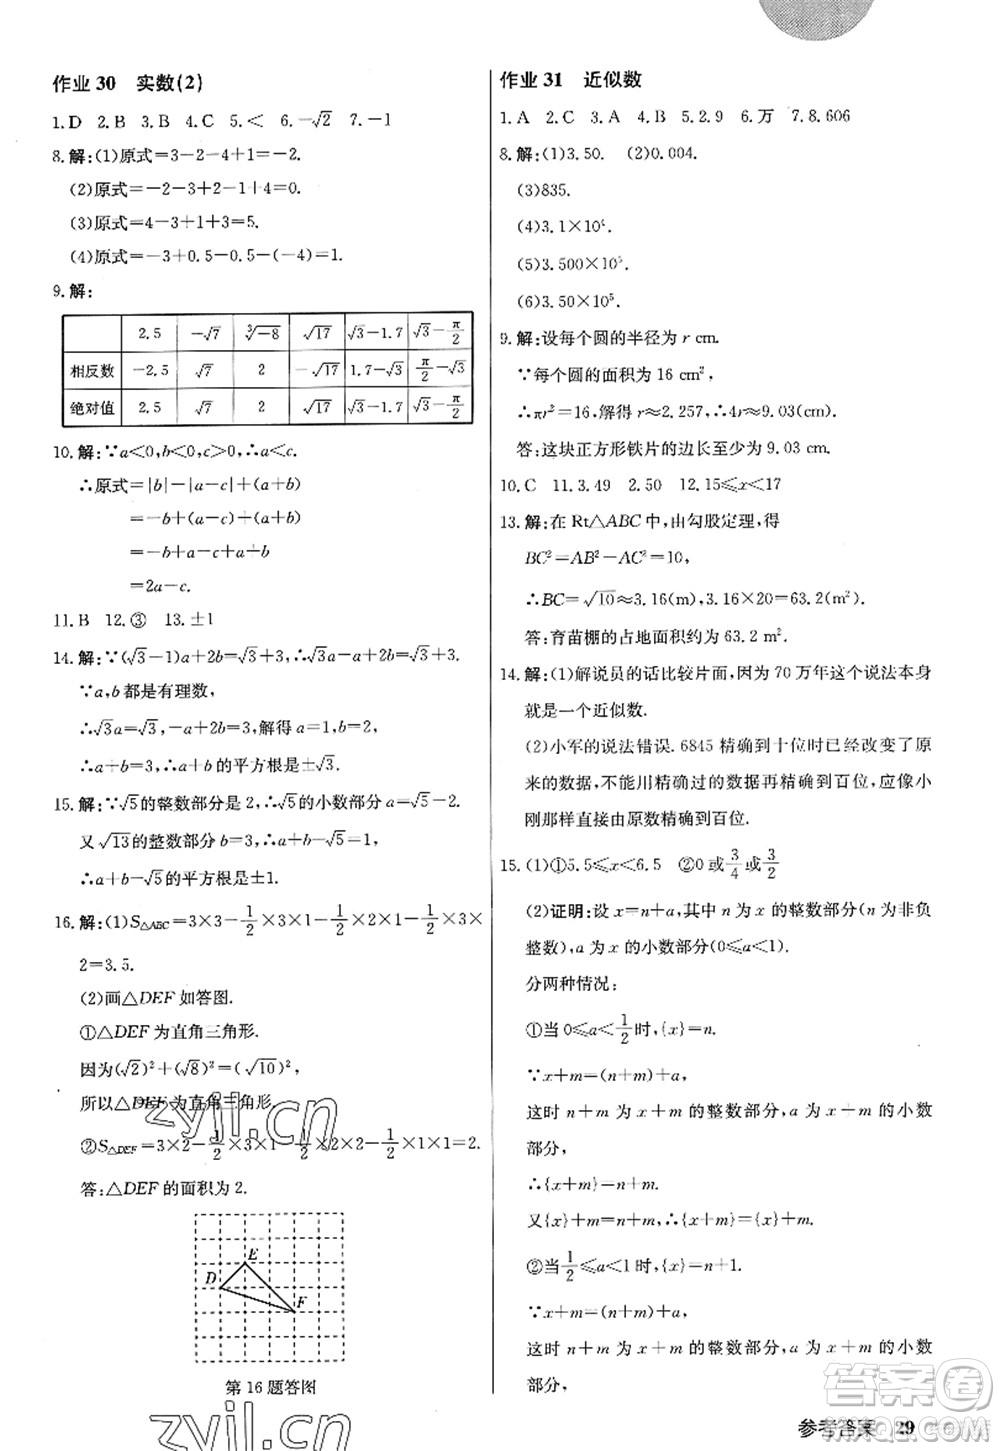 作业 30　实数(2)
1.D　2.B　3.B　4.C　5.<　6.-√2　7.-1
8.解:(1)原式=3-2-4+1=-2.
(2)原式=-2-3+2-1+4=0.
(3)原式=4-3+1+3=5.
(4)原式=-3+0.5-0.5-(-4)=1.
9.解:
2.5　-√7　∛-8　√17　√3-1.7　√3-π/2
相反数　-2.5　√7　2　-√17　1.7-√3　π/2-√3
绝对值　2.5　√7　2　√17　√3-1.7　√3-π/2
10.解:∵a<0,b<0,c>0,∴a<c.
∴原式=|b|-|a-c|+(a-c)
=-b+(a-c)+(a-c)+b
=-b+a-c+a-c+b
=2a-c.
11.B　12.③　13.±1
14.解:∵(√3-1)a+2b=√3+3,∴√3a-a+2b=√3+3.
∵a,b都是有理数,
∴√3a=√3,-a+2b=3,解得a=1,b=2.
∴a+b=3,∴a+b的平方根是±√3.
15.解:∵√5的整数部分是2,∴√5的小数部分a=√5-2.
又√13的整数部分b=3,∴a+b-√5=1;
∴a+b-√5的平方根是±1.
16.解:(1)S△ABC=3×3-1/2×3×1-1/2×2×1-1/2×3×
2=3.5.
(2)画△DEF如答图.
①△DEF为直角三角形.
因为(√2)²+(√8)²=(√10)²,
所以△DEF为直角三角形.
②S△DEF=3×2-1/2×3×1-1/2×2×2-1/2×1×1=2.
答:△DEF的面积为2.
D
E
F
第16题答图
zyjl.cn
zyjl.cn
作业 31　近似数
1.A　2.C　3.A　4.B　5.2.9　6.万　7.8.606
8.解:(1)3.50.　(2)0.004.
(3)835.
(5)3.500×10⁵.
9.解:设每个圆的半径为r cm.
∵每个圆的面积为16 cm²,
∴πr²=16,解得r≈2.257,∴4r≈9.03(cm).
答:这块正方形铁片的边长至少为9.03 cm.
10.C　11.3.49　2.50　12.15≤x<17
13.解:在Rt△ABC中,由勾股定理,得
BC²=AB²-AC²=10,
∴BC=√10≈3.16(m),3.16×20=63.2(m²).
答:育苗棚的占地面积约为63.2 m².
14.解:(1)解说员的话比较片面,因为70万年这个说法本身
就是一个近似数.
(2)小军的说法错误.6845精确到十位时已经改变了原
来的数据,不能用精确过的数据再精确到百位,应像小
刚那样直接由原数精确到百位.
15.(1)①5.5≤x<6.5　②0或3/4或3/2
(2)证明:设x=n+a,其中n为x的整数部分(n为非负
整数),a为x的小数部分(0≤a<1).
分两种情况:
①当0≤a<1/2时,{x}=n.
∵x+m=(n+m)+a,
这时n+m为x+m的整数部分,a为x+m的小数
部分,
∴{x+m}=n+m.
又{x}+m=n+m,∴{x+m}={x}+m.
②当1/2≤a<1时,{x}=n+1.
∵x+m=(n+m)+a,
这时n+m为x+m的整数部分,a为x+m的小数
部分,
参考答案　29
答案圈